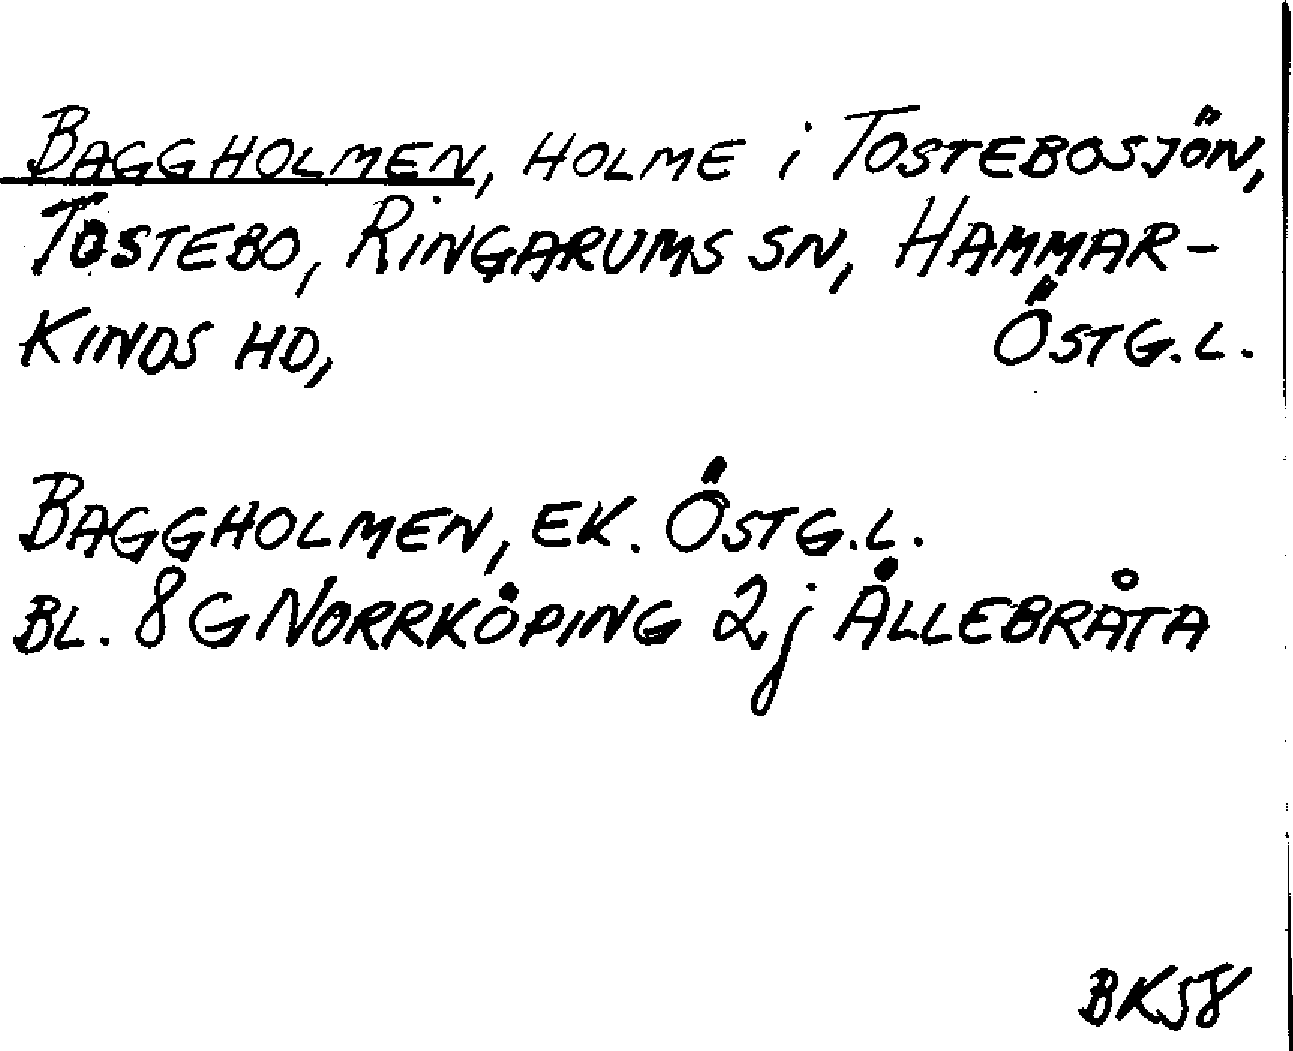 BAGGHOLMEN, HOLME i TOSTEBOSJÖN,
TOSTEBO, RINGARUMS SN, HAMMAR-
KINDS HD, ÖSTG.L.
BAGGHOLMEN, EK. ÖSTG.L.
BL. 8G NORRKÖPING 2j ÅLLEBRÅTA
BK58